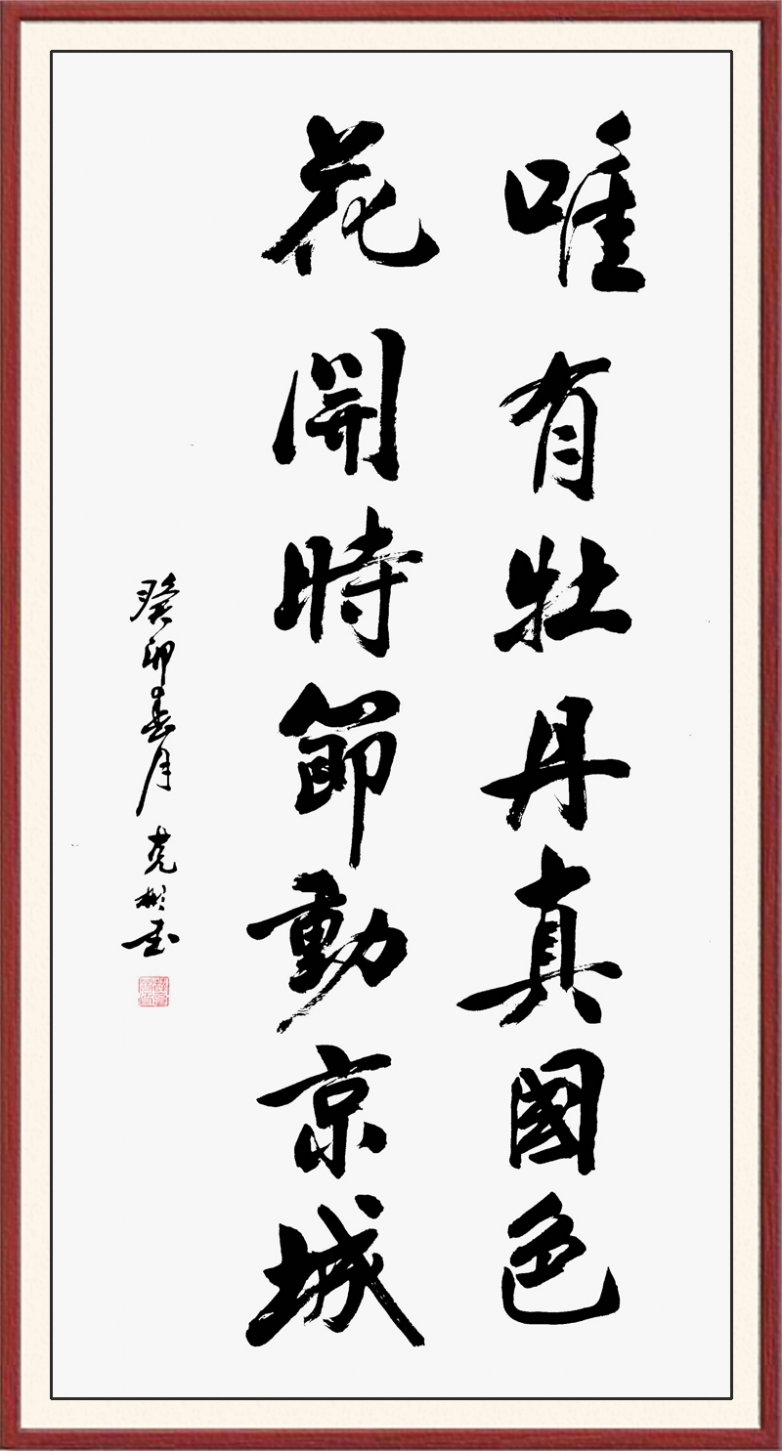 唯有牡丹真國色
花開時節動京城
癸卯春月 克彬书